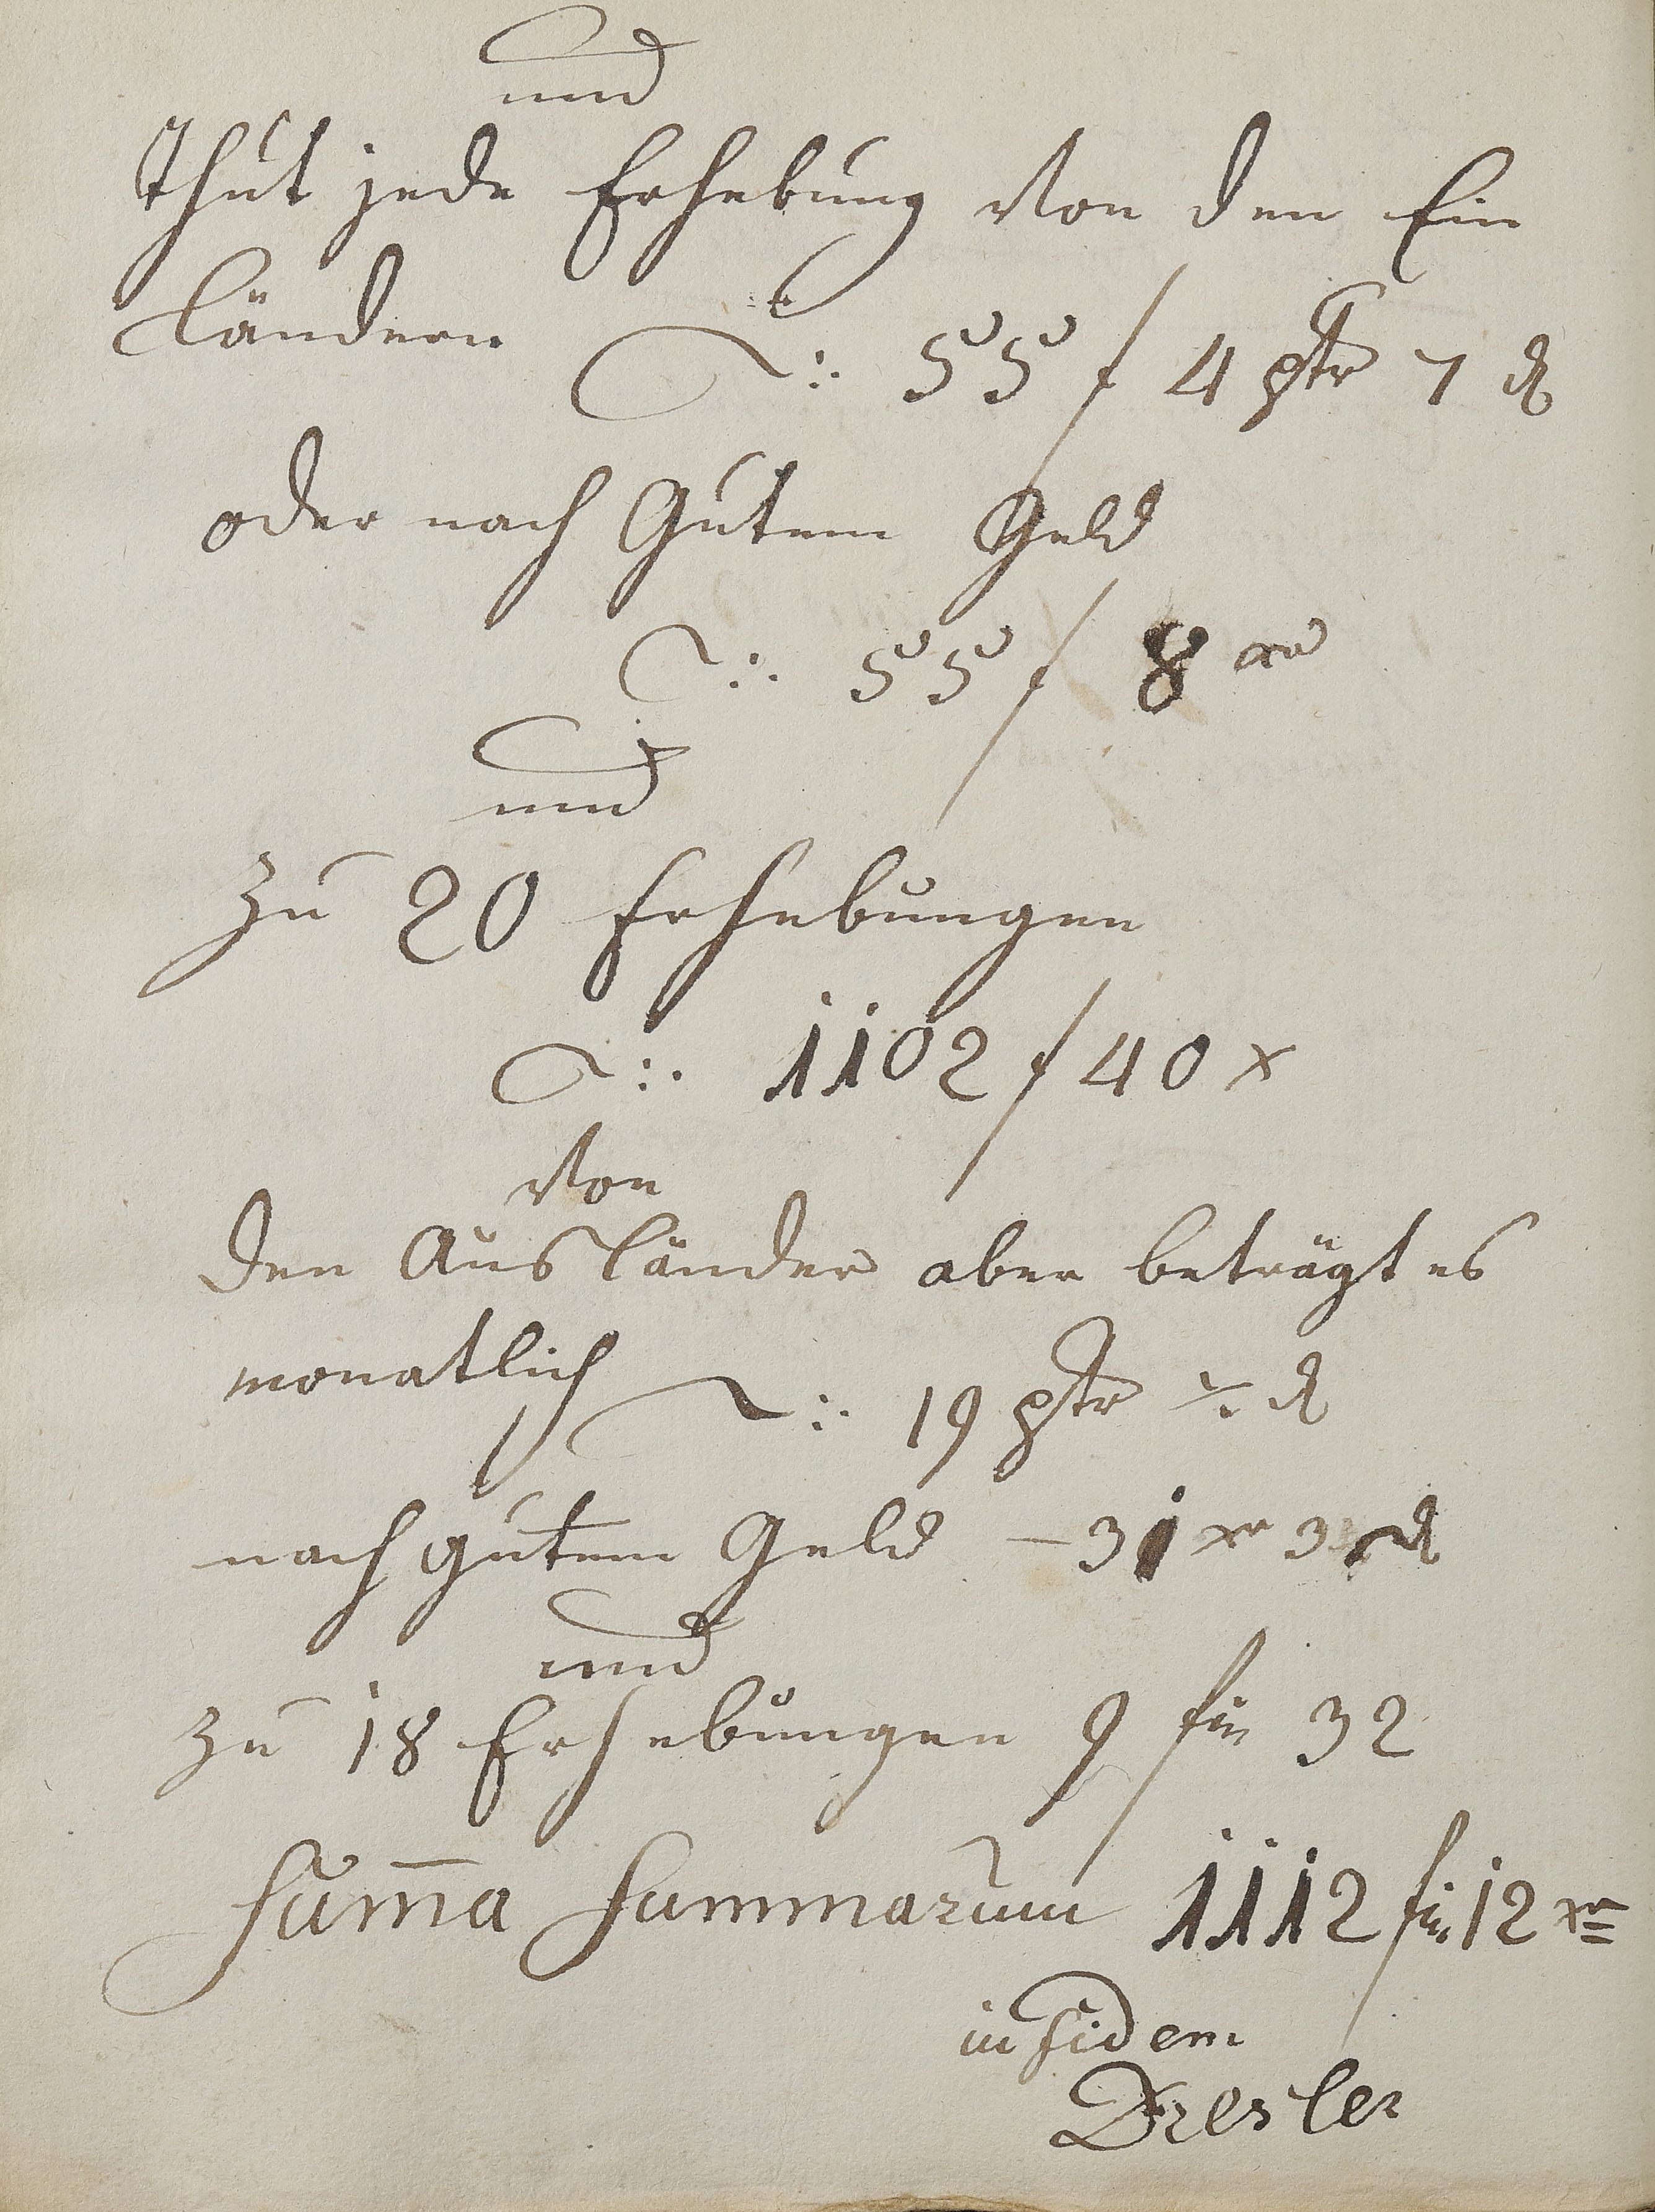 und
thut jede Erhebung von den Ein
ländern ∼ :. 55 f 4 ptr 7 ₰
oder nach Gutem Geld
∼ :. 55 f 8 xr
und
zu 20 Erhebungen
∼ :. 1102 f 40 x
Von
den Ausländer aber beträgt es
monatlich ∼ :. 19 ptr ⁒ ₰
nach gutem Geld – 31 xr 3 ₰
und
zu 18 Erhebungen 9 fln 32
Sum̅a Summarum 1112 fln 12 xr
in fidem
Dresler